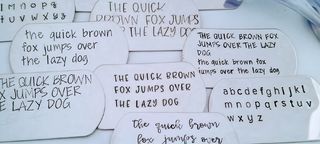 i j k l m n o p q r
t u v w x y z
THE QUICK
BROWN FOX JUMPS
OVER THE LAZY DOG
the quick brown
fox jumps over
the lazy dog
THE QUICK BROWN FOX
JUMPS OVER THE LAZY
DOG
the quick brown fox
jumps over the lazy
dog
THE QUICK BROWN
FOX JUMPS OVER
THE LAZY DOG
THE QUICK BROWN
FOX JUMPS OVER
THE LAZY DOG
abcdefghijkl
mnopqrstuv
wxyz
the quick brown
fox jumps over